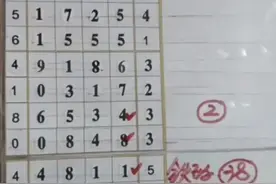 5 1 7 2 5 4
6 1 5 5 5 1
4 9 1 8 6 3
1 0 3 1 7 2
8 6 5 3 4 3 ②
0 0 8 4 8 3
4 4 8 1 1 5 38